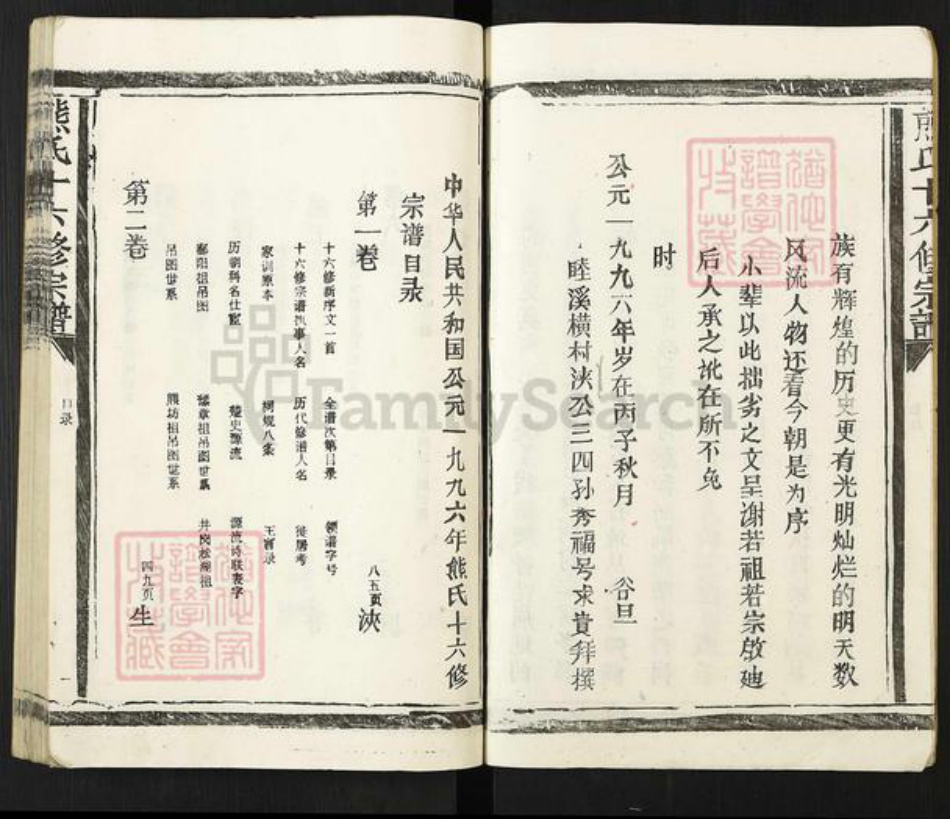 熊氏十六修宗譜
族有辉煌的历史更有光明灿烂的明天数
风流人物还看今朝是为序
小辈以此拙劣之文呈谢若祖若宗啟迪
后人承之讹在所不免
时
公元一九九六年岁在丙子秋月 谷旦
睦溪横村浃公三四孙秀福号求貴拜撰
中华人民共和国公元一九九六年熊氏十六修
宗谱目录
第一卷 八五頁 浹
十六修新序文一首 全谱次第目录 领谱字号
十六修宗谱执事人名 历代修谱人名 徙居考
家训原本 祠规八条 王言录
历朝科名仕宦 楚史源流 源流诗联表字
鄱阳祖吊图 豫章祖吊图世系
吊图世系 熊坊祖吊图世系
第二卷 四九页 生
熊氏十六修宗譜
目录
一
FamilySearch